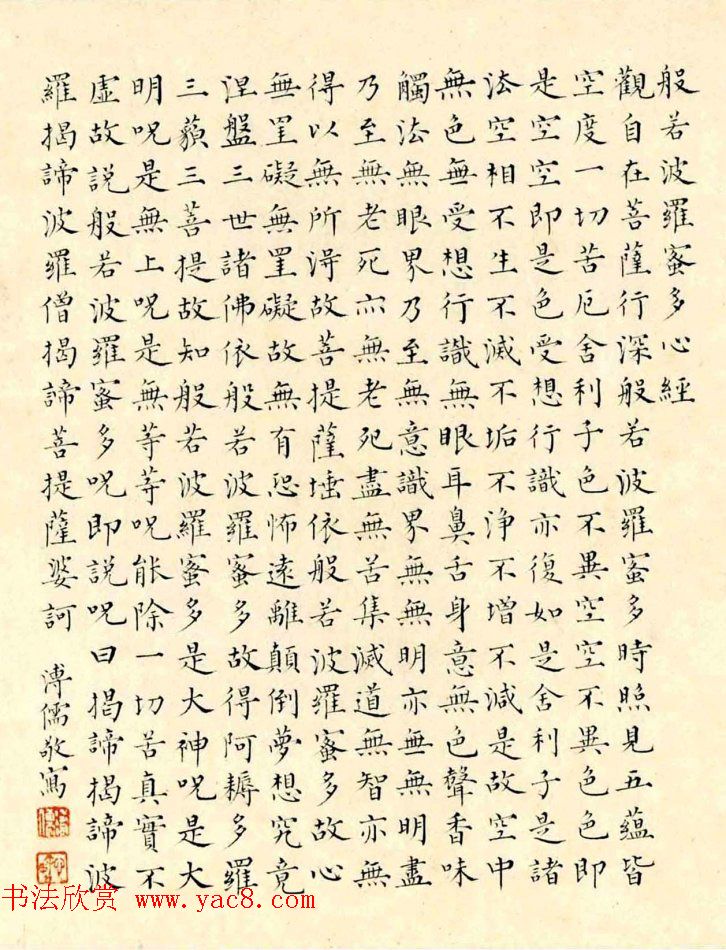 般若波羅蜜多心經
觀自在菩薩行深般若波羅蜜多時照見五蘊皆
空度一切苦厄舍利子色不異空空不異色色即
是空空即是色受想行識亦復如是舍利子是諸
法空相不生不滅不垢不浄不增不減是故空中
無色無受想行識無眼耳鼻舌身意無色聲香味
觸法無眼界乃至無意識界無無明亦無無明盡
乃至無老死亦無老死盡無苦集滅道無智亦無
得以無所得故菩提薩埵依般若波羅蜜多故心
無罣礙無罣礙故無有恐怖遠離顛倒夢想究竟
涅盤三世諸佛依般若波羅蜜多故得阿耨多羅
三藐三菩提故知般若波羅蜜多是大神呪是大
明呪是無上呪是無等等呪能除一切苦真實不
虛故說般若波羅蜜多呪即說呪曰揭諦揭諦波
羅揭諦波羅僧揭諦菩提薩婆訶
溥儒敬寫
书法欣赏 www.yac8.com